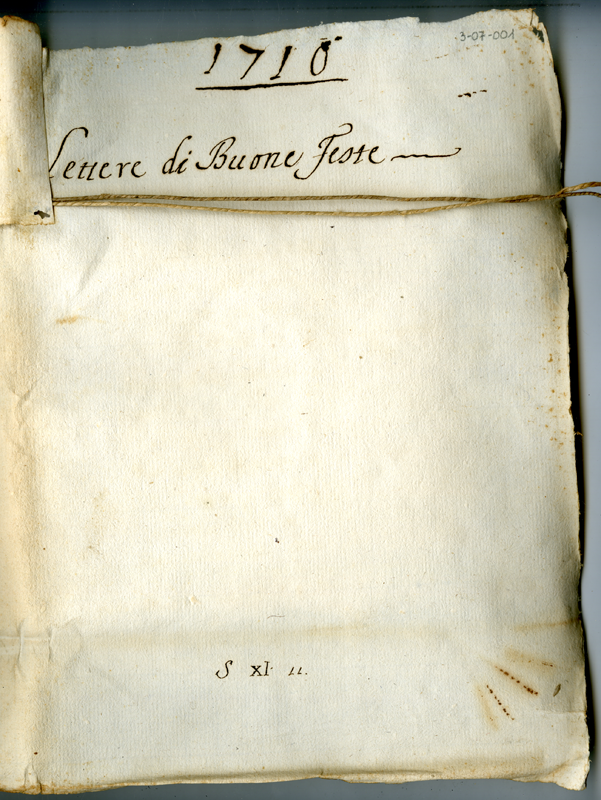 3-07-001
1710
Lettere di Buone Feste
S XI 11.